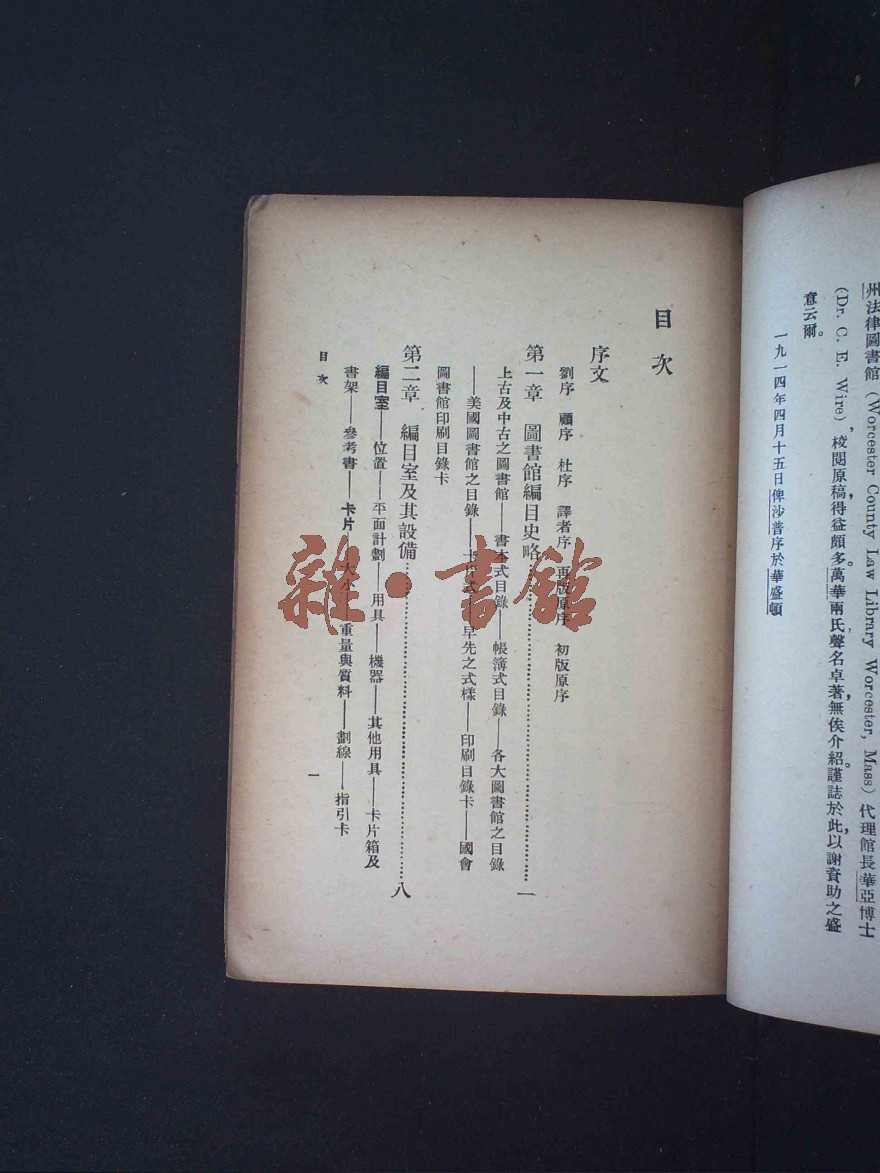 州法律圖書館 (Worcester County Law Library Worcester, Mass) 代理館長華亞博士
(Dr. C. E. Wire), 校閱原稿,得益頗多。萬華兩氏,聲名卓著,無俟介紹。謹誌於此,以謝資助之盛
意云爾。
一九一四年四月十五日俾沙普序於華盛頓
目次
序文
劉序 顧序 杜序 譯者序 再版原序 初版原序
第一章 圖書館編目史略……一
上古及中古之圖書館——書本式目錄——帳簿式目錄——各大圖書館之目錄
——美國圖書館之目錄——卡片式——早先之式樣——印刷目錄卡——國會
圖書館印刷目錄卡
第二章 編目室及其設備……八
編目室——位置——平面計劃——用具——機器——其他用具——卡片箱及
書架——參考書——卡片——大小——重量與質料——劃線——指引卡
目次
一
雜·書館